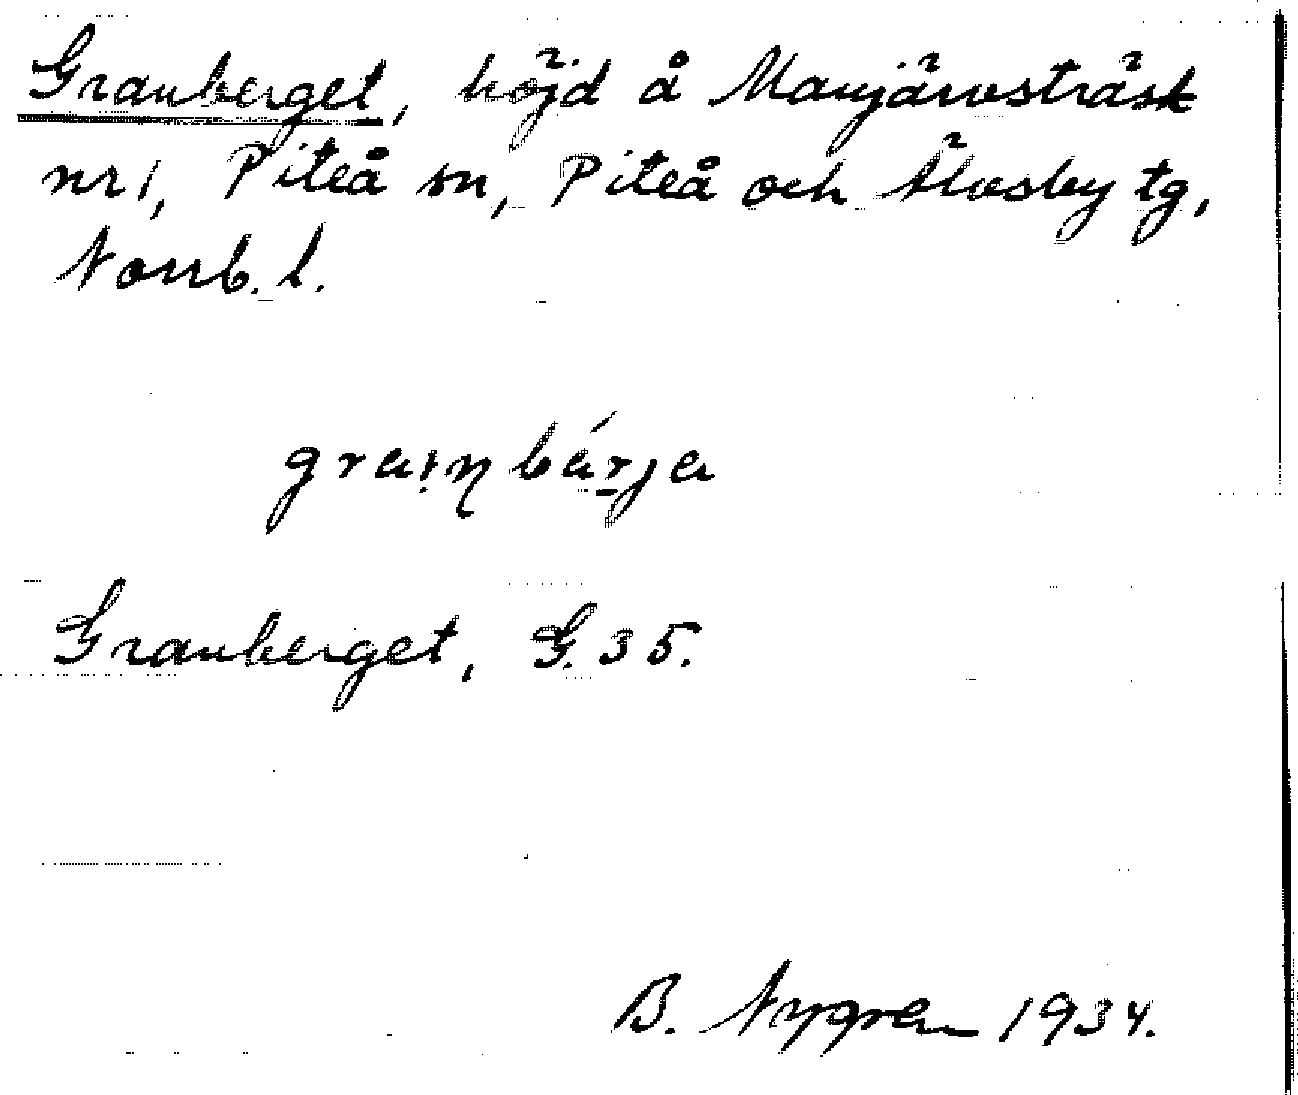 Granberget, höjd å Manjärvsträsk
nr 1, Piteå sn, Piteå och Älvsby tg,
Norrb. l.
Granberget, G. 35.
B. Nygren 1934.